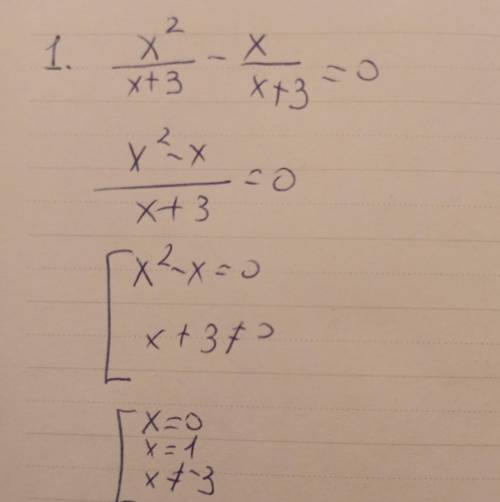 1. x²/(x+3) - x/(x+3) = 0
(x²-x)/(x+3) = 0
[ x²-x=0
x+3≠0
[ x=0
x=1
x≠-3